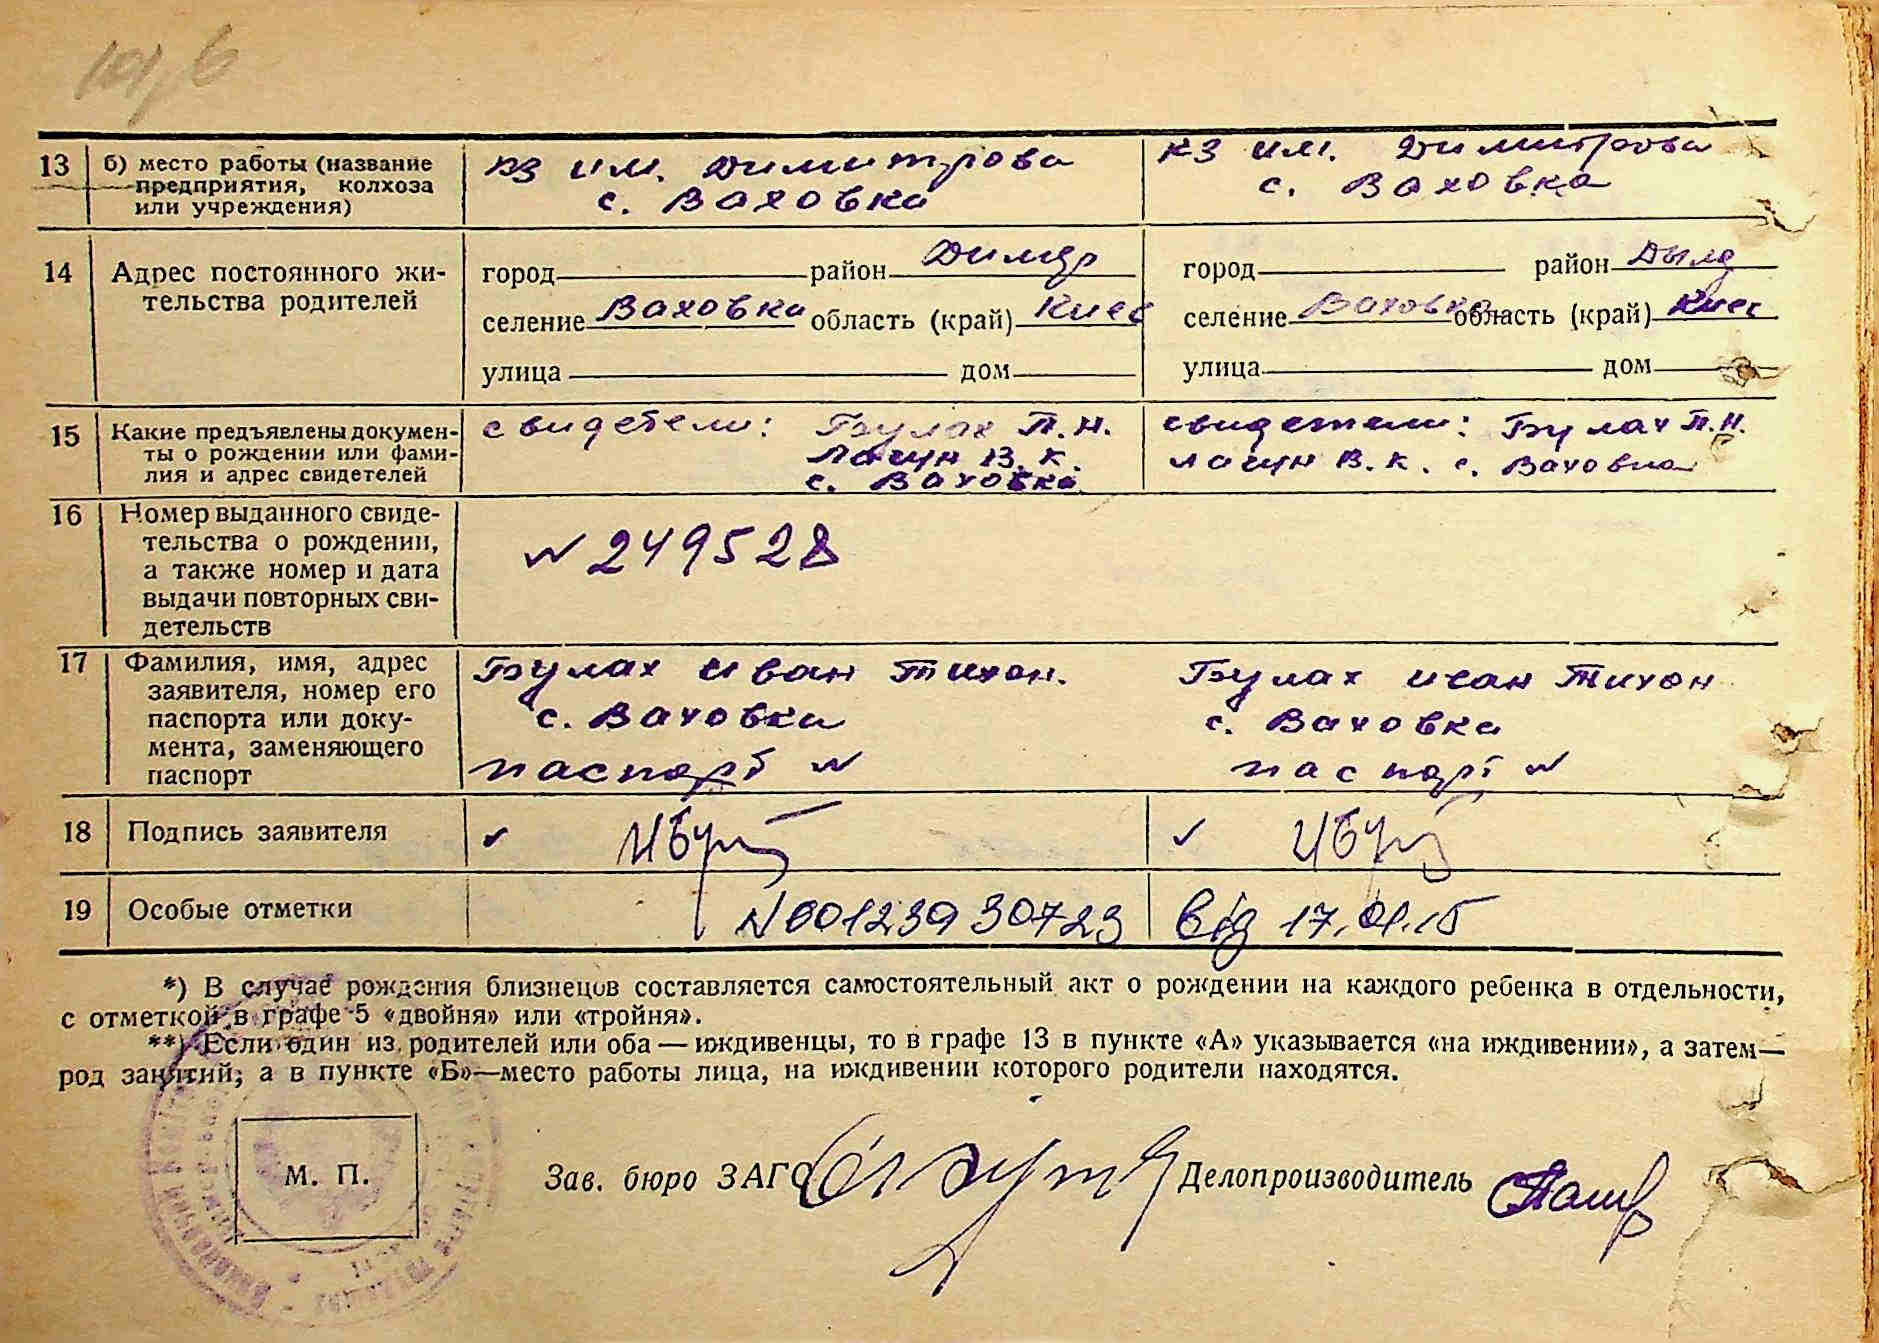 13 б) место работы (название предприятия, колхоза или учреждения)
кз им. Димитрова
с. Ваховка
кз им. Димитрова
с. Ваховка
14 Адрес постоянного жи-
тельства родителей
город район Димер
селение Ваховка область (край) Киев
улица дом
город район Дым
селение Ваховка область (край) Киев
улица дом
15 Какие предъявлены докумен-
ты о рождении или фами-
лия и адрес свидетелей
свидетели: Булах П.Н.
Лагун В. К.
с. Ваховка
свидетели: Булах П.Н.
Лагун В. К. с. Ваховка
16 Номер выданного свиде-
тельства о рождении,
а также номер и дата
выдачи повторных сви-
детельств
N 249528
17 Фамилия, имя, адрес
заявителя, номер его
паспорта или доку-
мента, заменяющего
паспорт
Булах Иван Тихон.
с. Ваховка
паспорт N
Булах Иван Тихон
с. Ваховка
паспорт N
18 Подпись заявителя
19 Особые отметки
N00123930723 від 17.01.15
*) В случае рождения близнецов составляется самостоятельный акт о рождении на каждого ребенка в отдельности,
с отметкой в графе 5 «двойня» или «тройня».
**) Если один из родителей или оба — иждивенцы, то в графе 13 в пункте «А» указывается «на иждивении», а затем—
род занятий; а в пункте «Б»—место работы лица, на иждивении которого родители находятся.
М. П.
Зав. бюро ЗАГС
Делопроизводитель